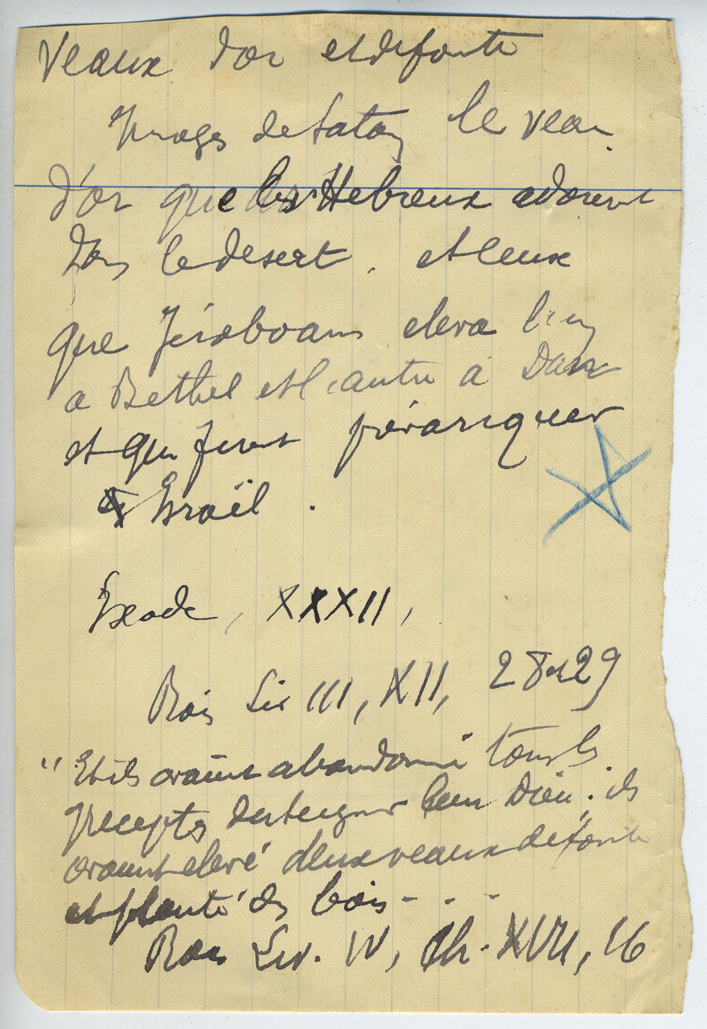 Veaux d'or et de fonte
Images de Satan le veau
d'or que les Hebreux adorent
dans le desert, et ceux
que Jéroboam eleva l'un
a Bethel et l'autre a Dan
et qui firent prévariquer
Israël.
Exode, XXXII,
Rois Liv III, XII, 28 et 29
"Et ils avaient abandonné tous les
preceptes du Seigneur leur Dieu; ils
avaient elevé deux veaux de fonte
et planté des bois - - -
Rois Liv. IV, Ch. XVII, 16